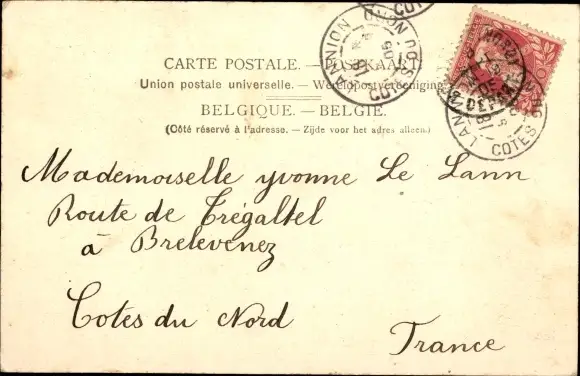 CARTE POSTALE. — POSTKAART.
Union postale universelle. — Wereldpostvereeniging.
BELGIQUE. — BELGIE.
(Côté réservé à l'adresse. — Zijde voor het adres alleen.)
LANNION
COTES DU NORD
DEPART
LAN
COTES
Mademoiselle yvonne Le Lann
Route de Trégaltel
à Brelevenez
Cotes du Nord
France